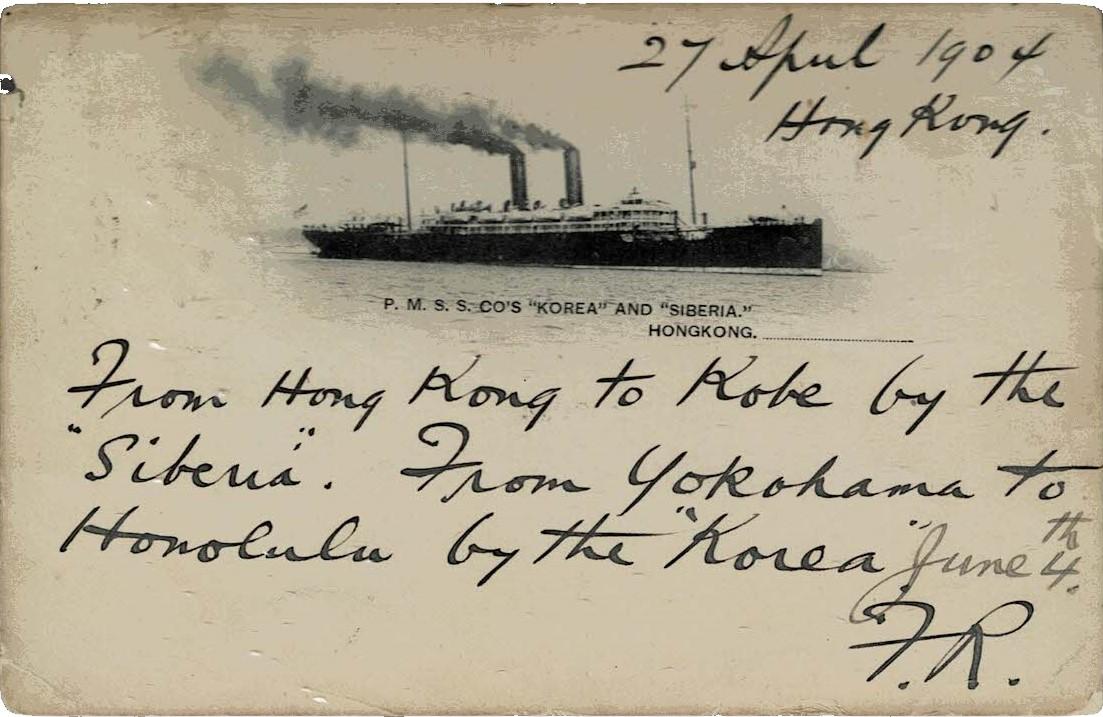 27 April 1904
Hong Kong.
P. M. S. S. CO'S "KOREA" AND "SIBERIA."
HONGKONG.
From Hong Kong to Kobe by the
"Siberia". From Yokohama to
Honolulu by the "Korea" June 4th.
F.R.